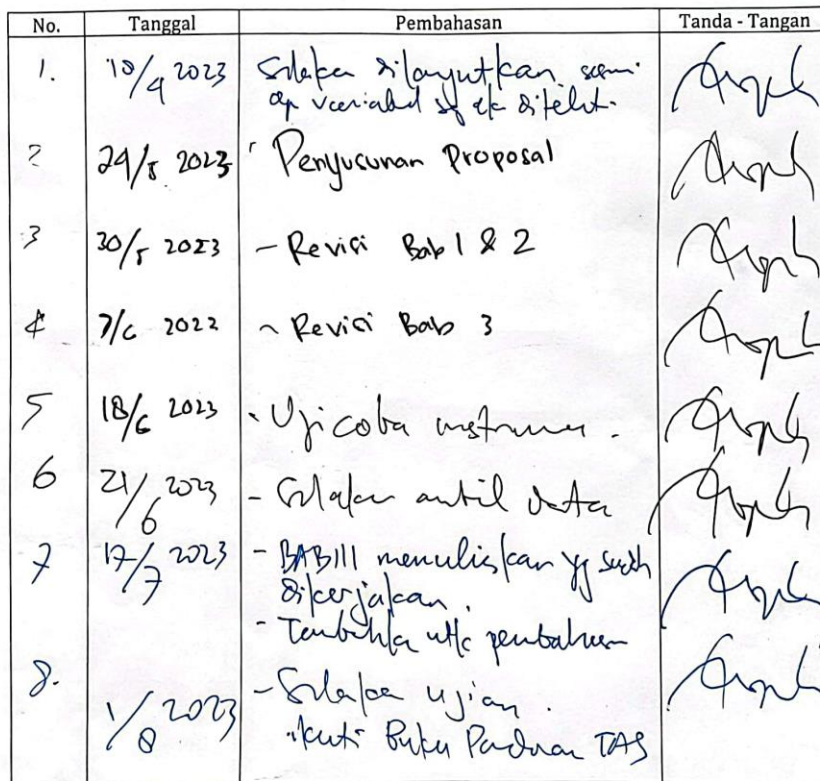 No. Tanggal Pembahasan Tanda - Tangan
1. 10/4 2023 Silakan dilanjutkan
variabel yg diteliti.
2 24/5 2023 Penyusunan Proposal
3 30/5 2023 - Revisi Bab 1 & 2
4 7/6 2022 - Revisi Bab 3
5 18/6 2023 - Ujicoba instrumen.
6 21/6 2023 - Silakan ambil data
7 17/7 2023 - BAB III menuliskan yg sudah
dikerjakan.
- Tambahkan utk pembahasan
8. 1/8 2023 - Silakan ujian.
ikuti Buku Panduan TAS